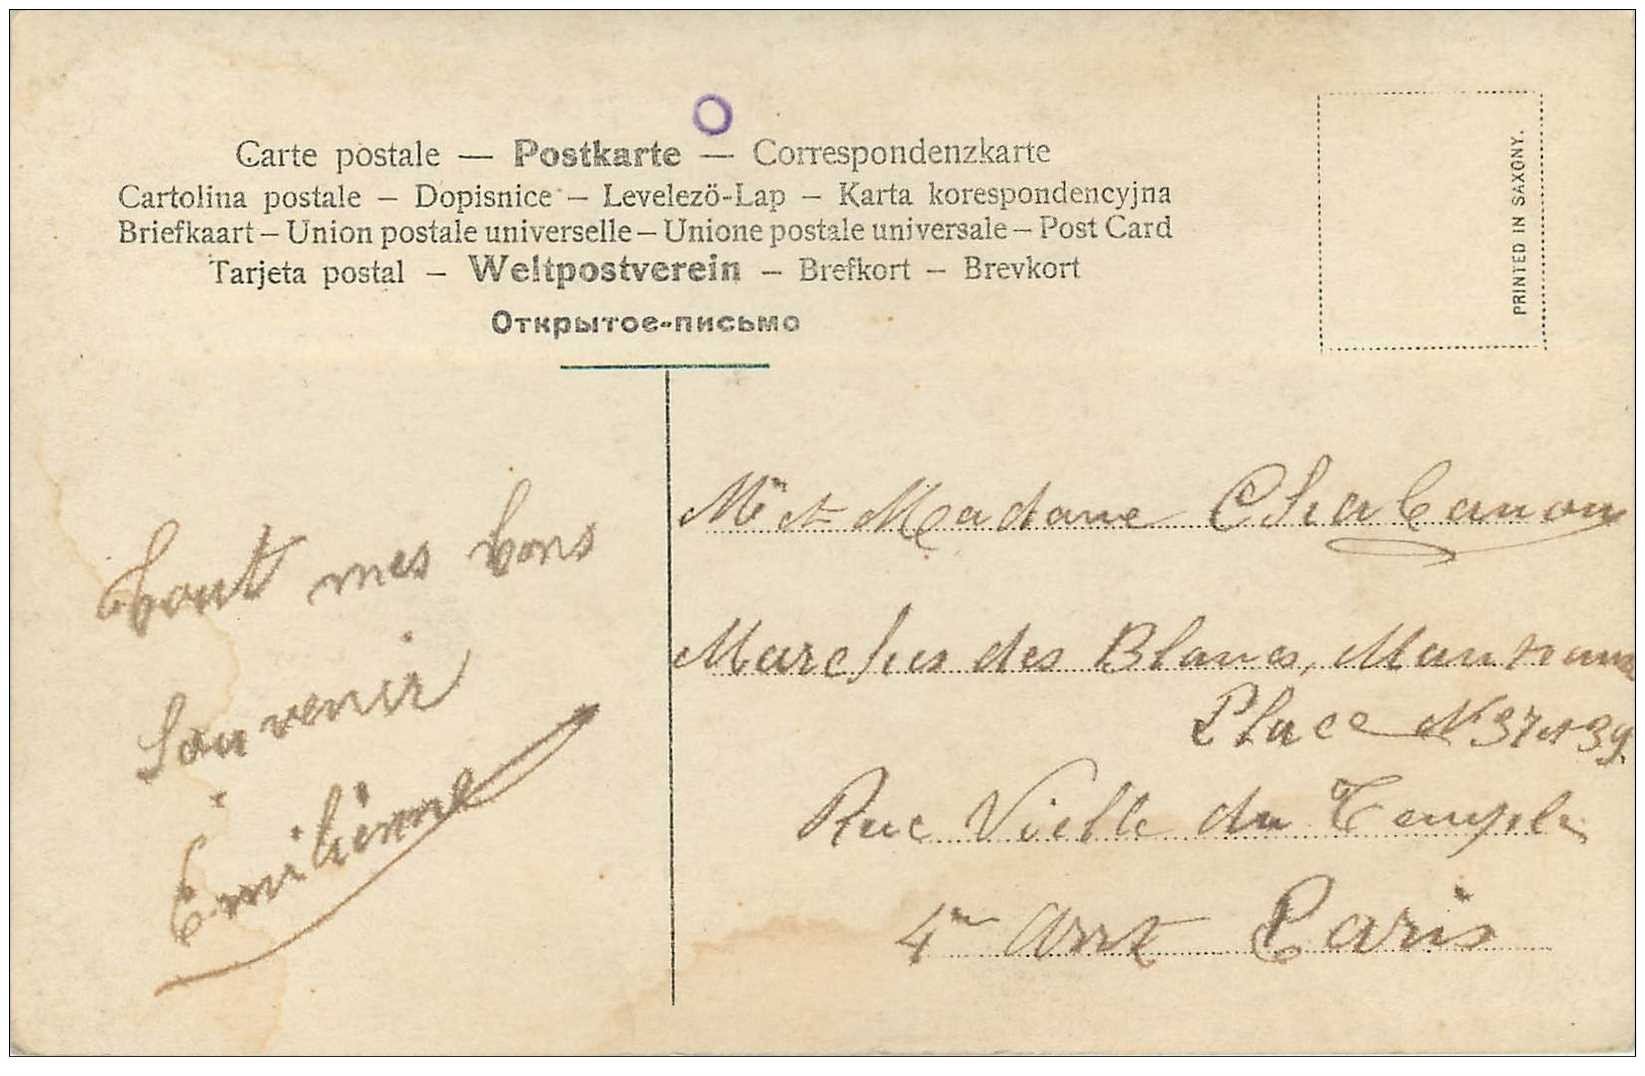 Carte postale — Postkarte — Correspondenzkarte
Cartolina postale – Dopisnice – Levelezö-Lap – Karta korespondencyjna
Briefkaart – Union postale universelle – Unione postale universale – Post Card
Tarjeta postal – Weltpostverein – Brefkort – Brevkort
Открытое-письмо
PRINTED IN SAXONY.
Tout mes bons
Souvenir
Emilienne
Mr et Madame Chabanon
Marches des Blancs, Manteaux
Place N 37 et 39.
Rue Vielle du Temple
4me Arrt Paris